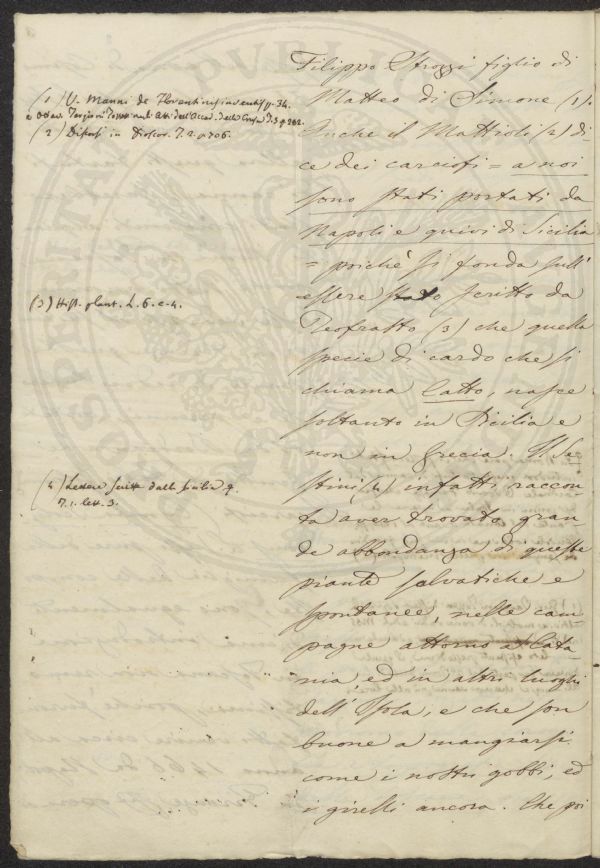 Filippo Strozzi figlio di
Matteo di Simone (1).
Anche il Mattioli (2) di
ce dei carciofi = a noi
sono stati portati da
Napoli e quivi di Sicilia
= poiché si fonda sull'
essere stato scritto da
Teofrasto (3) che quella
specie di cardo che si
chiama Catto, nasce
soltanto in Sicilia e
non in Grecia. Il Se-
stini (4) infatti raccon-
ta aver trovato gran-
de abbondanza di queste
piante salvatiche e
spontanee, nelle cam-
pagne attorno a Cata
nia ed in altri luoghi
dell'Isola, e che son
buone a mangiarsi
come i nostri gobbi, ed
i girelli ancora. Che poi
(1) V. Manni de Florentinis inventis p. 34.
(2) Discorsi in Dioscor. T. 2. p. 706.
(3) Hist. plant. L. 6. c. 4.
(4) Lettere scritte dalla Sicilia
T. 1. lett. 3.